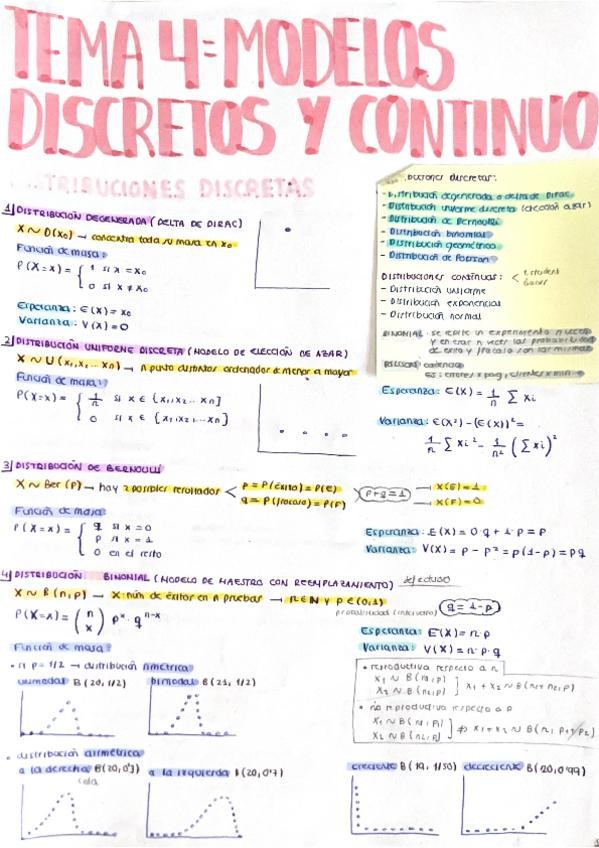 TEMA 4= MODELOS
DISCRETOS Y CONTINUO
TRIBUCIONES DISCRETAS
1) DISTRIBUCIÓN DEGENERADA (DELTA DE DIRAC)
X ~ D(x₀) → concentra toda su masa en x₀
Función de masa:
P(X=x) = { 1 si x = x₀
0 si x ≠ x₀
Esperanza: E(X) = x₀
Varianza: V(X) = 0
buciones discretas:
- Distribución degenerada o delta de Dirac
- Distribución uniforme discreta (elección azar)
- Distribución de Bernoulli
- Distribución binomial
- Distribución geométrica
- Distribución de Poisson
DISTRIBUCIONES CONTINUAS: < t student
- Distribución uniforme
- Distribución exponencial
- Distribución normal
BINOMIAL: se repite un experimento n veces
y en esas n veces las probabilidad
de éxito y fracaso son las mismas
2) DISTRIBUCIÓN UNIFORME DISCRETA (MODELO DE ELECCIÓN DE AZAR)
X ~ U(x₁, x₂, ... xn) → n puntos distintos ordenados de menor a mayor
Función de masa:
P(X=x) = { 1/n si x ∈ {x₁, x₂, ... xn}
0 si x ∉ {x₁, x₂ ... xn}
Esperanza: E(X) = 1/n ∑ xi
Varianza: E(X²) - (E(X))² =
1/n ∑ xi² - 1/n² (∑ xi)²
3) DISTRIBUCIÓN DE BERNOULLI
X ~ Ber (P) → hay 2 posibles resultados < p = P(éxito) = P(E) → X(E) = 1
q = P(fracaso) = P(F) → X(F) = 0
p+q = 1
Función de masa:
P(X=x) = { q si x = 0
p si x = 1
0 en el resto
Esperanza: E(X) = 0·q + 1·p = p
Varianza: V(X) = p - p² = p(1-p) = pq
4) DISTRIBUCIÓN BINOMIAL (MODELO DE MAESTRO CON REEMPLAZAMIENTO) defectuoso
X ~ B(n, p) → X: núm de éxitos en n pruebas → n ∈ N y p ∈ (0,1)
probabilidad (intervalo) q = 1-p
P(X=x) = (n x) pˣ · qⁿ⁻ˣ
Esperanza: E(X) = n·p
Varianza: V(X) = n·p·q
Función de masa:
• si p = 1/2 → distribución simétrica
unimodal B(20, 1/2) bimodal B(21, 1/2)
• reproductiva respecto a n
X₁ ~ B(n₁, p)
X₂ ~ B(n₂, p) ] X₁ + X₂ ~ B(n₁+n₂, p)
• no reproductiva respecto a p
X₁ ~ B(n, p₁)
X₂ ~ B(n, p₂) ] ⇏ X₁ + X₂ ~ B(n, p₁+p₂)
• distribución asimétrica
a la derecha B(20, 0'3) a la izquierda B(20, 0'7) creciente B(19, 1/50) decreciente B(20, 0'99)
cola